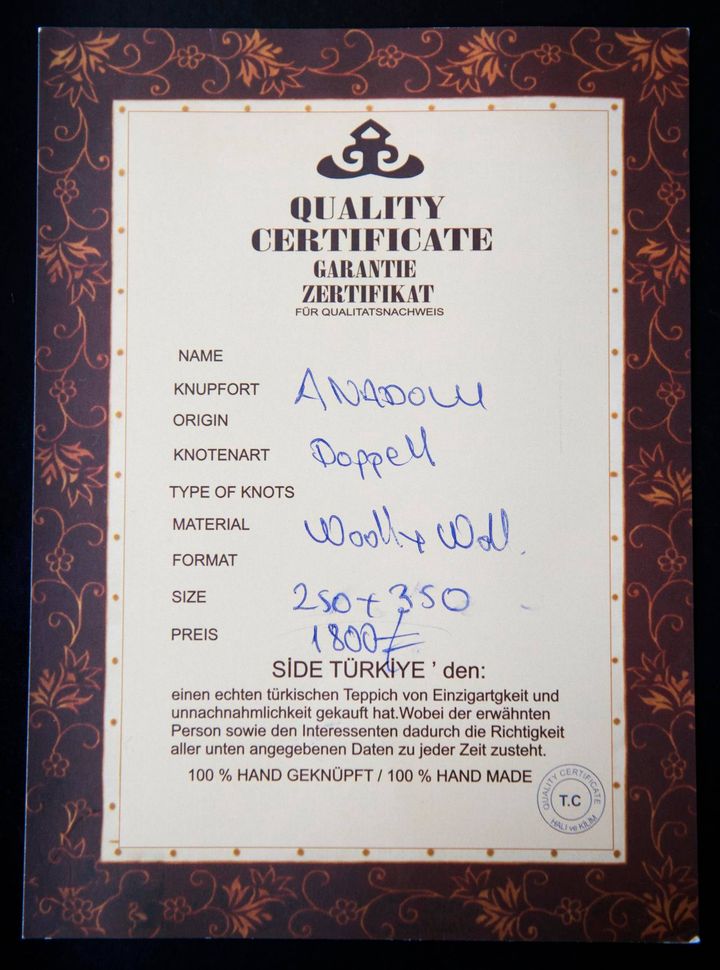 QUALITY
CERTIFICATE
GARANTIE
ZERTIFIKAT
FÜR QUALITATSNACHWEIS
NAME
KNUPFORT ANADOLU
ORIGIN
KNOTENART Doppell
TYPE OF KNOTS
MATERIAL Woolle + Woll.
FORMAT
SIZE 250 + 350
PREIS 1800 €
SİDE TÜRKİYE ' den:
einen echten türkischen Teppich von Einzigartgkeit und
unnachnahmlichkeit gekauft hat.Wobei der erwähnten
Person sowie den Interessenten dadurch die Richtigkeit
aller unten angegebenen Daten zu jeder Zeit zusteht.
100 % HAND GEKNÜPFT / 100 % HAND MADE
QUALITY CERTIFICATE
T.C
HALI ve KİLİM